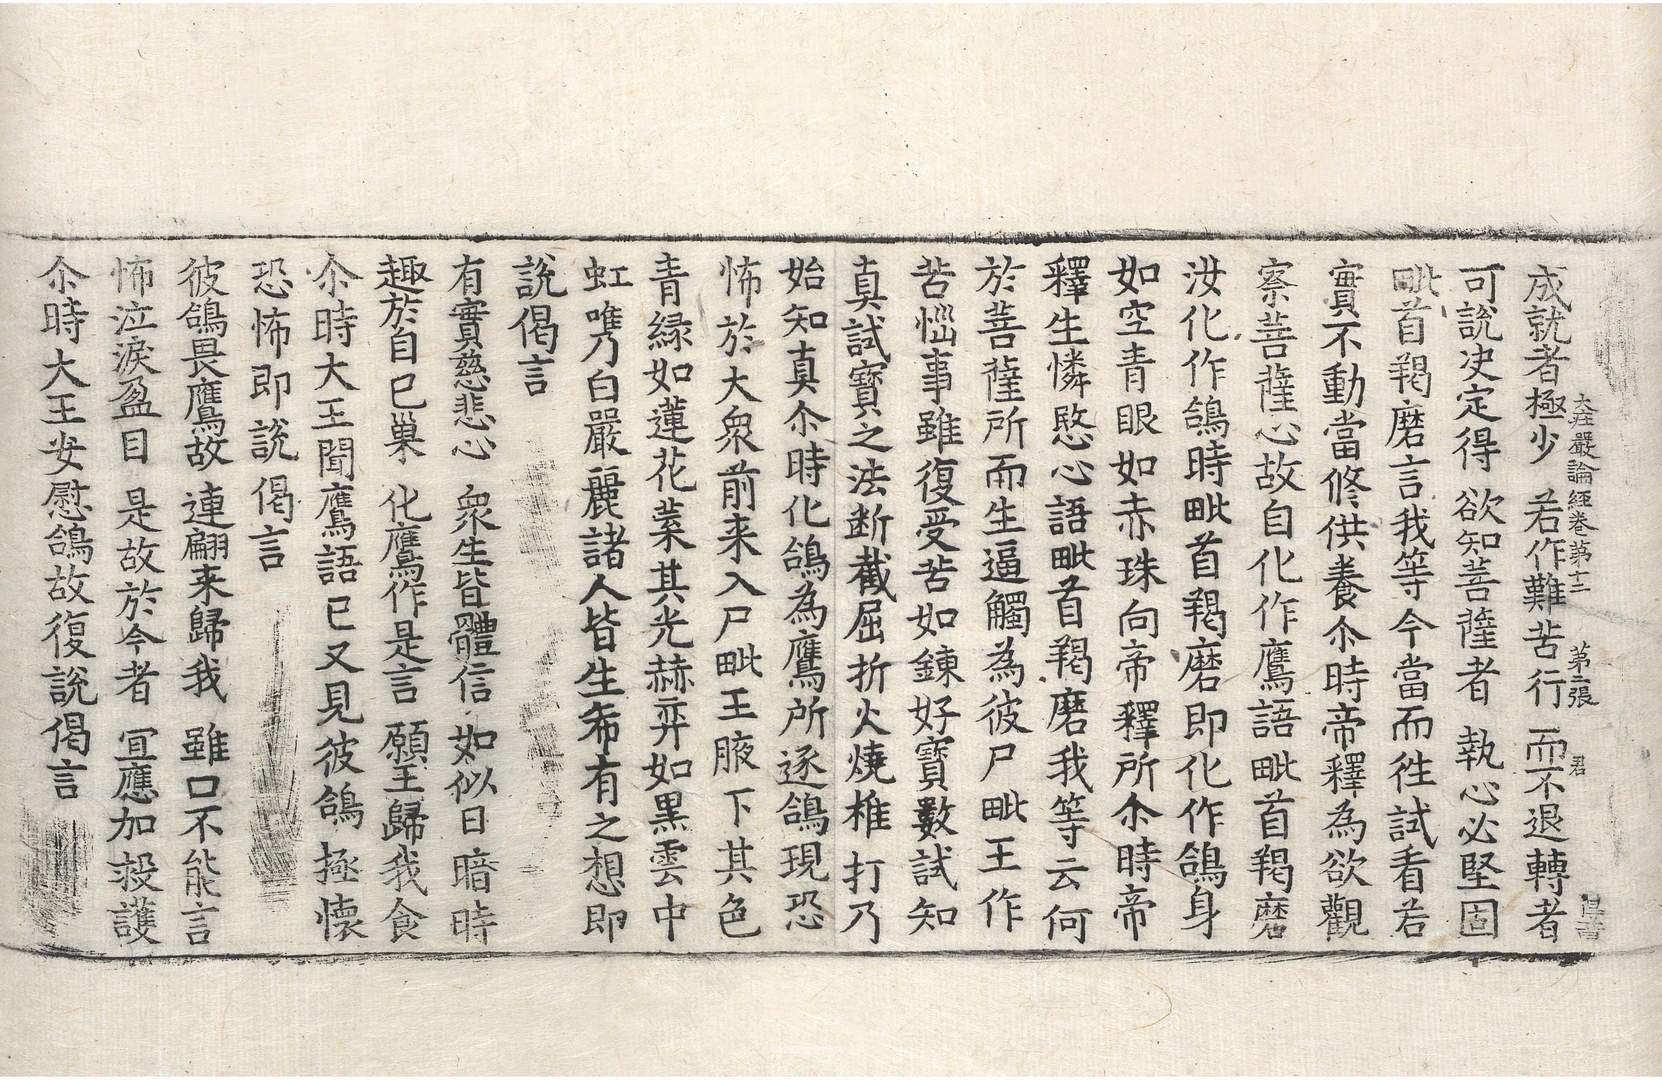 大莊嚴論經卷第十二 第二張 君
成就者極少 若作難苦行 而不退轉者
可說决定得 欲知菩薩者 執心必堅固
毗首羯磨言我等今當而徃試看若
實不動當修供養尒時帝釋為欲觀
察菩薩心故自化作鷹語毗首羯磨
汝化作鴿時毗首羯磨即化作鴿身
如空青眼如赤珠向帝釋所尒時帝
釋生憐愍心語毗首羯磨我等云何
於菩薩所而生逼觸為彼尸毗王作
苦惱事雖復受苦如鍊好寶數試知
真試寶之法断截屈折火燒椎打乃
始知真尒時化鴿為鷹所逐鴿現恐
怖於大衆前来入尸毗王腋下其色
青緑如蓮花葉其光赫弈如黒雲中
虹嘴乃白嚴麗諸人皆生希有之想即
說偈言
有實慈悲心 衆生皆體信 如似日暗時
趣於自巳巢 化鷹作是言 願王歸我食
尒時大王聞鷹語已又見彼鴿極懷
恐怖即說偈言
彼鴿畏鷹故 連翩来歸我 雖口不能言
怖泣淚盈目 是故於今者 宜應加救護
尒時大王安慰鴿故復說偈言